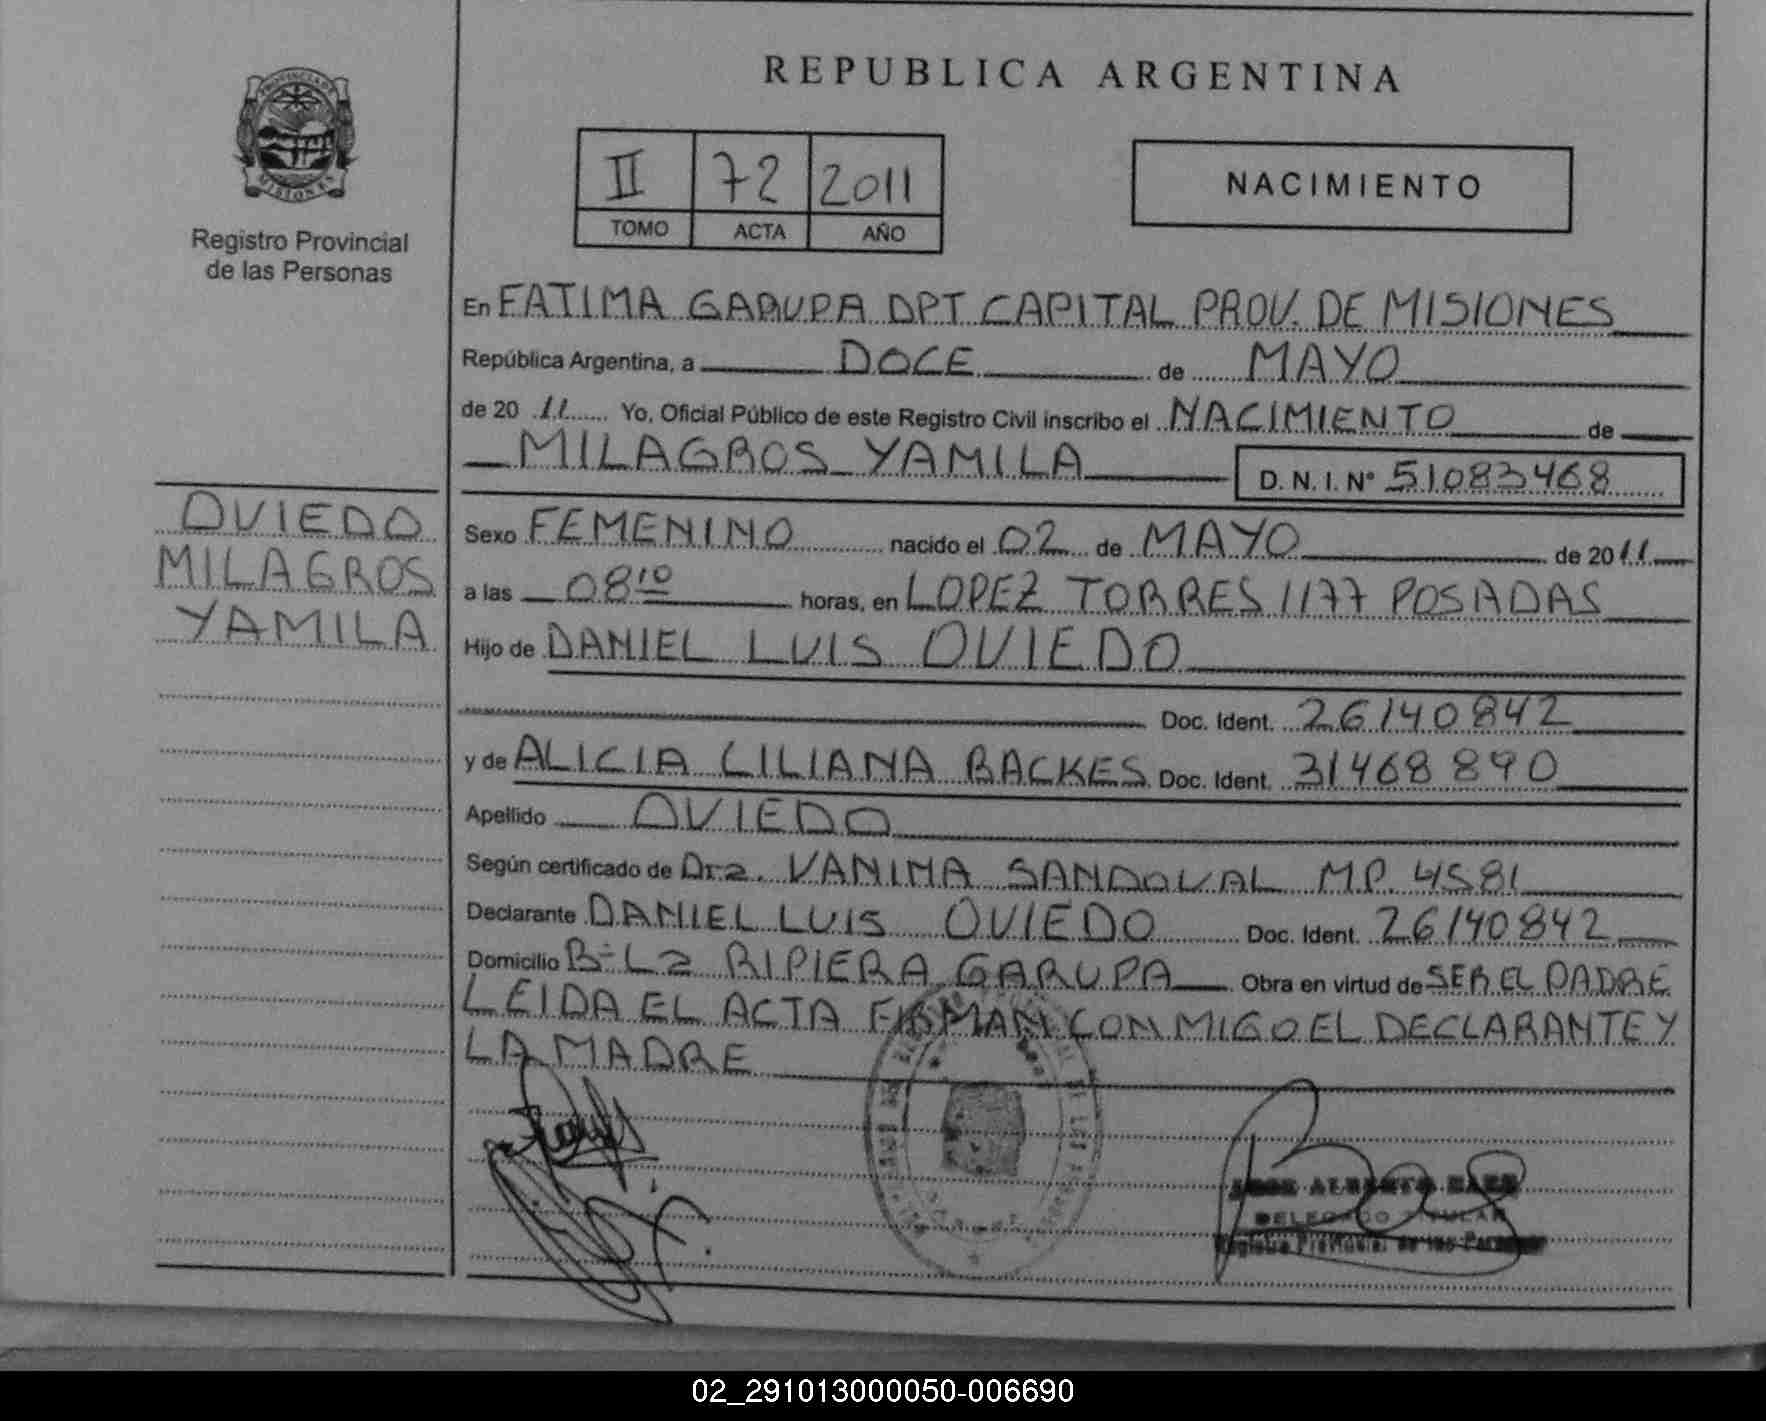 REPUBLICA ARGENTINA
PROVINCIA DE
MISIONES
Registro Provincial
de las Personas
II 72 2011
TOMO ACTA AÑO
NACIMIENTO
En FATIMA GARUPA DPT CAPITAL PROV. DE MISIONES
República Argentina, a DOCE de MAYO
de 20 11 Yo, Oficial Público de este Registro Civil inscribo el NACIMIENTO de
MILAGROS YAMILA D. N. I. N° 51083468
OVIEDO
MILAGROS
YAMILA
Sexo FEMENINO nacido el 02 de MAYO de 2011
a las 08 10 horas, en LOPEZ TORRES 1177 POSADAS
Hijo de DANIEL LUIS OVIEDO
Doc. Ident. 26140842
y de ALICIA LILIANA BACKES Doc. Ident. 31468890
Apellido OVIEDO
Según certificado de Dra. VANINA SANDOVAL M.P. 4581
Declarante DANIEL LUIS OVIEDO Doc. Ident. 26140842
Domicilio B° La RIPIERA GARUPA Obra en virtud de SER EL PADRE
LEIDA EL ACTA FIRMAN CONMIGO EL DECLARANTE Y
LA MADRE
JOSE ALBERTO BAEZ
DELEGADO TITULAR
Registro Provincial de las Personas
02_291013000050-006690